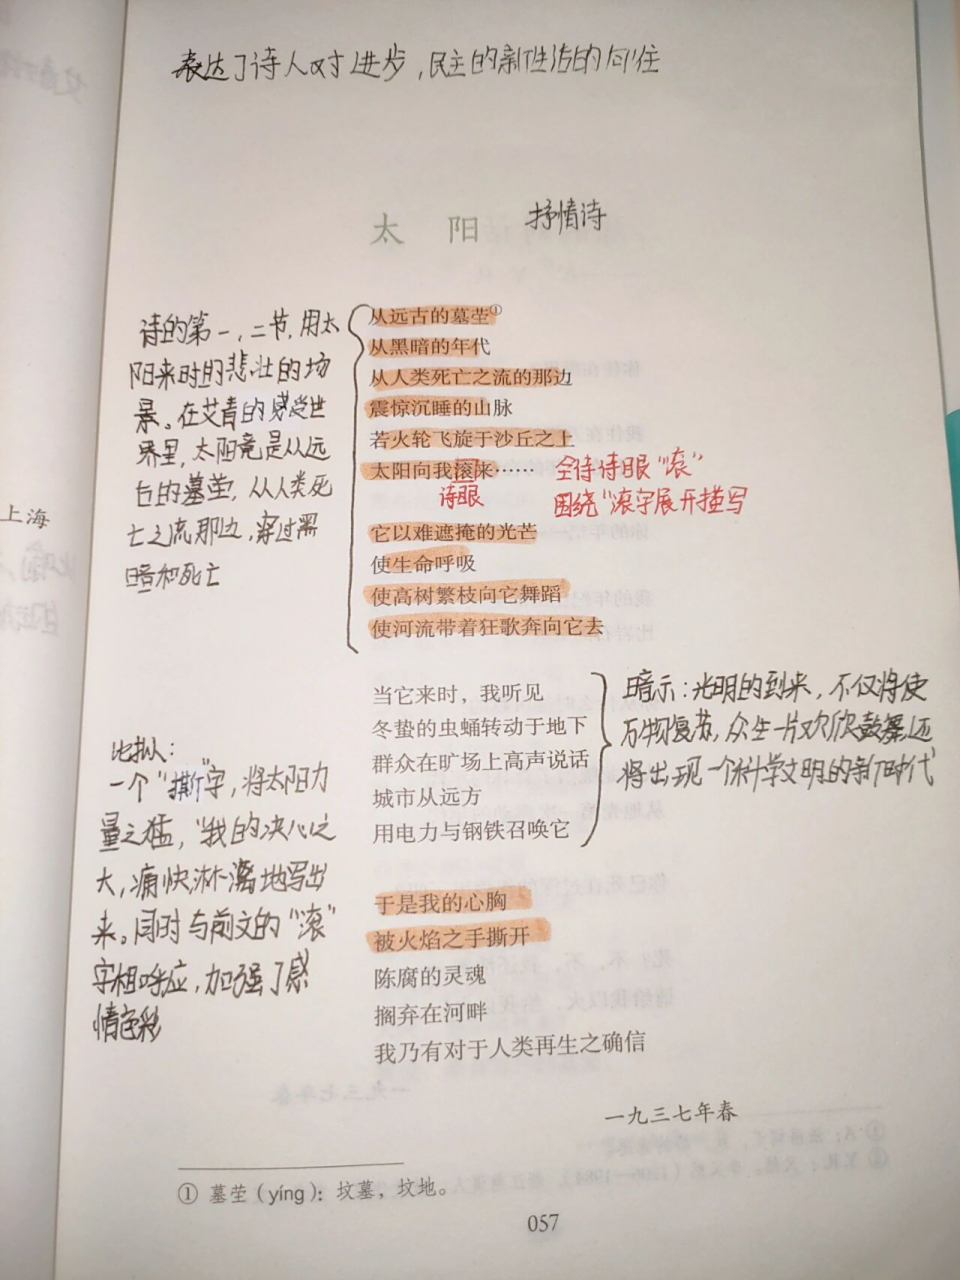 表达了诗人对进步,民主的新生活的向往
太 阳
抒情诗
诗的第一,二节,用太
阳来时的悲壮的场
景。在艾青的感觉世
界里,太阳竟是从远
古的墓茔,从人类死
亡之流那边,穿过黑
暗和死亡
从远古的墓茔①
从黑暗的年代
从人类死亡之流的那边
震惊沉睡的山脉
若火轮飞旋于沙丘之上
太阳向我滚来……
诗眼
全诗诗眼“滚”
围绕“滚字展开描写
它以难遮掩的光芒
使生命呼吸
使高树繁枝向它舞蹈
使河流带着狂歌奔向它去
当它来时,我听见
冬蛰的虫蛹转动于地下
群众在旷场上高声说话
城市从远方
用电力与钢铁召唤它
暗示:光明的到来,不仅将使
万物复苏,众生一片欢欣鼓舞,还
将出现一个科学文明的新时代
比拟:
一个“撕”字,将太阳力
量之猛,“我的决心之
大,痛快淋漓地写出
来。同时与前文的“滚”
字相呼应,加强了感
情色彩
于是我的心胸
被火焰之手撕开
陈腐的灵魂
搁弃在河畔
我乃有对于人类再生之确信
一九三七年春
① 墓茔(yíng):坟墓,坟地。
057
上海